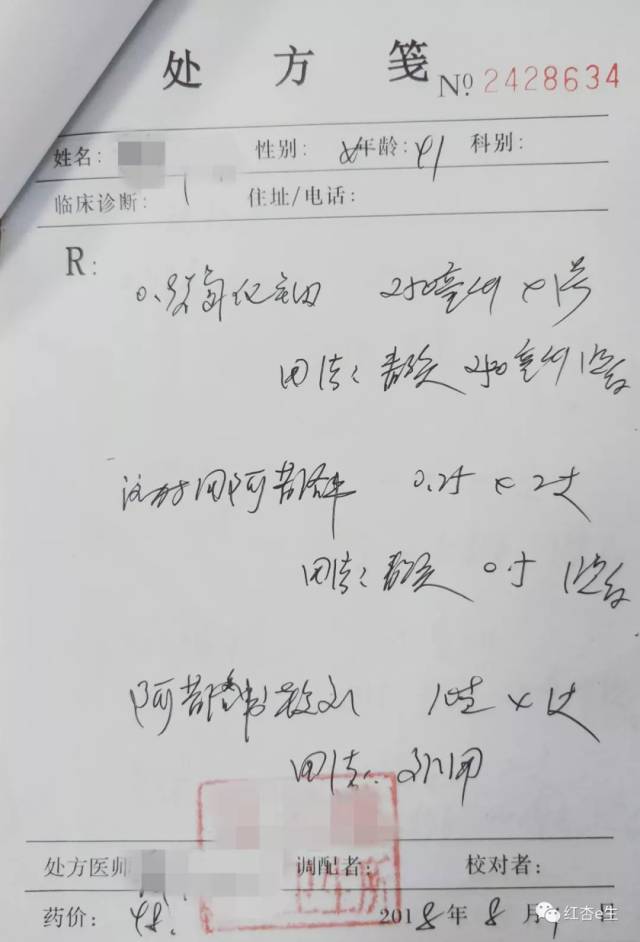 处方笺
№ 2428634
姓名: 性别: 女 年龄: 41 科别:
临床诊断: 住址/电话:
R:
0.9%氯化钠 250毫升 x 1
用法: 静滴 250毫升 1
注射用阿昔洛韦 0.25 x 2支
用法: 静滴 0.5 1
阿昔洛韦 1支 x 1支
用法: 外用
卫生所
处方医师 调配者: 校对者:
药价: 48. 2018年8月 日
红杏e生